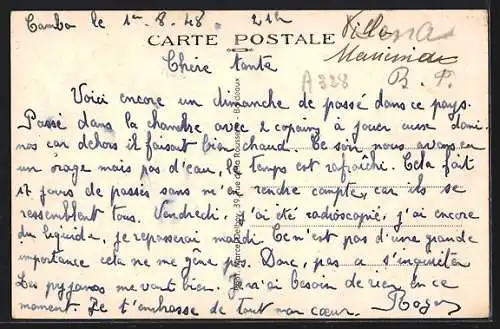 Cambo le 1er. 8. 48. 21h
Villa
CARTE POSTALE
B. P.
Chère tante
A 328
Voici encore un dimanche de passé dans ce pays.
Passé dans la chambre avec 2 copains à jouer aux domi-
nos car dehors il faisait bien chaud. Ce soir nous avons eu
un orage mais pas d'eau, le temps est rafraichi. Cela fait
17 jours de passés sans m'en rendre compte, car ils se
ressemblent tous. Vendredi, j'ai été radioscopié, j'ai encore
du liquide, je repasserai mardi. Ce n'est pas d'une grande
importance cela ne me gêne pas. Donc, pas à s'inquiéter
Les pyjamas me vont bien. Je n'ai besoin de rien en ce
moment. Je t'embrasse de tout mon cœur. Roger